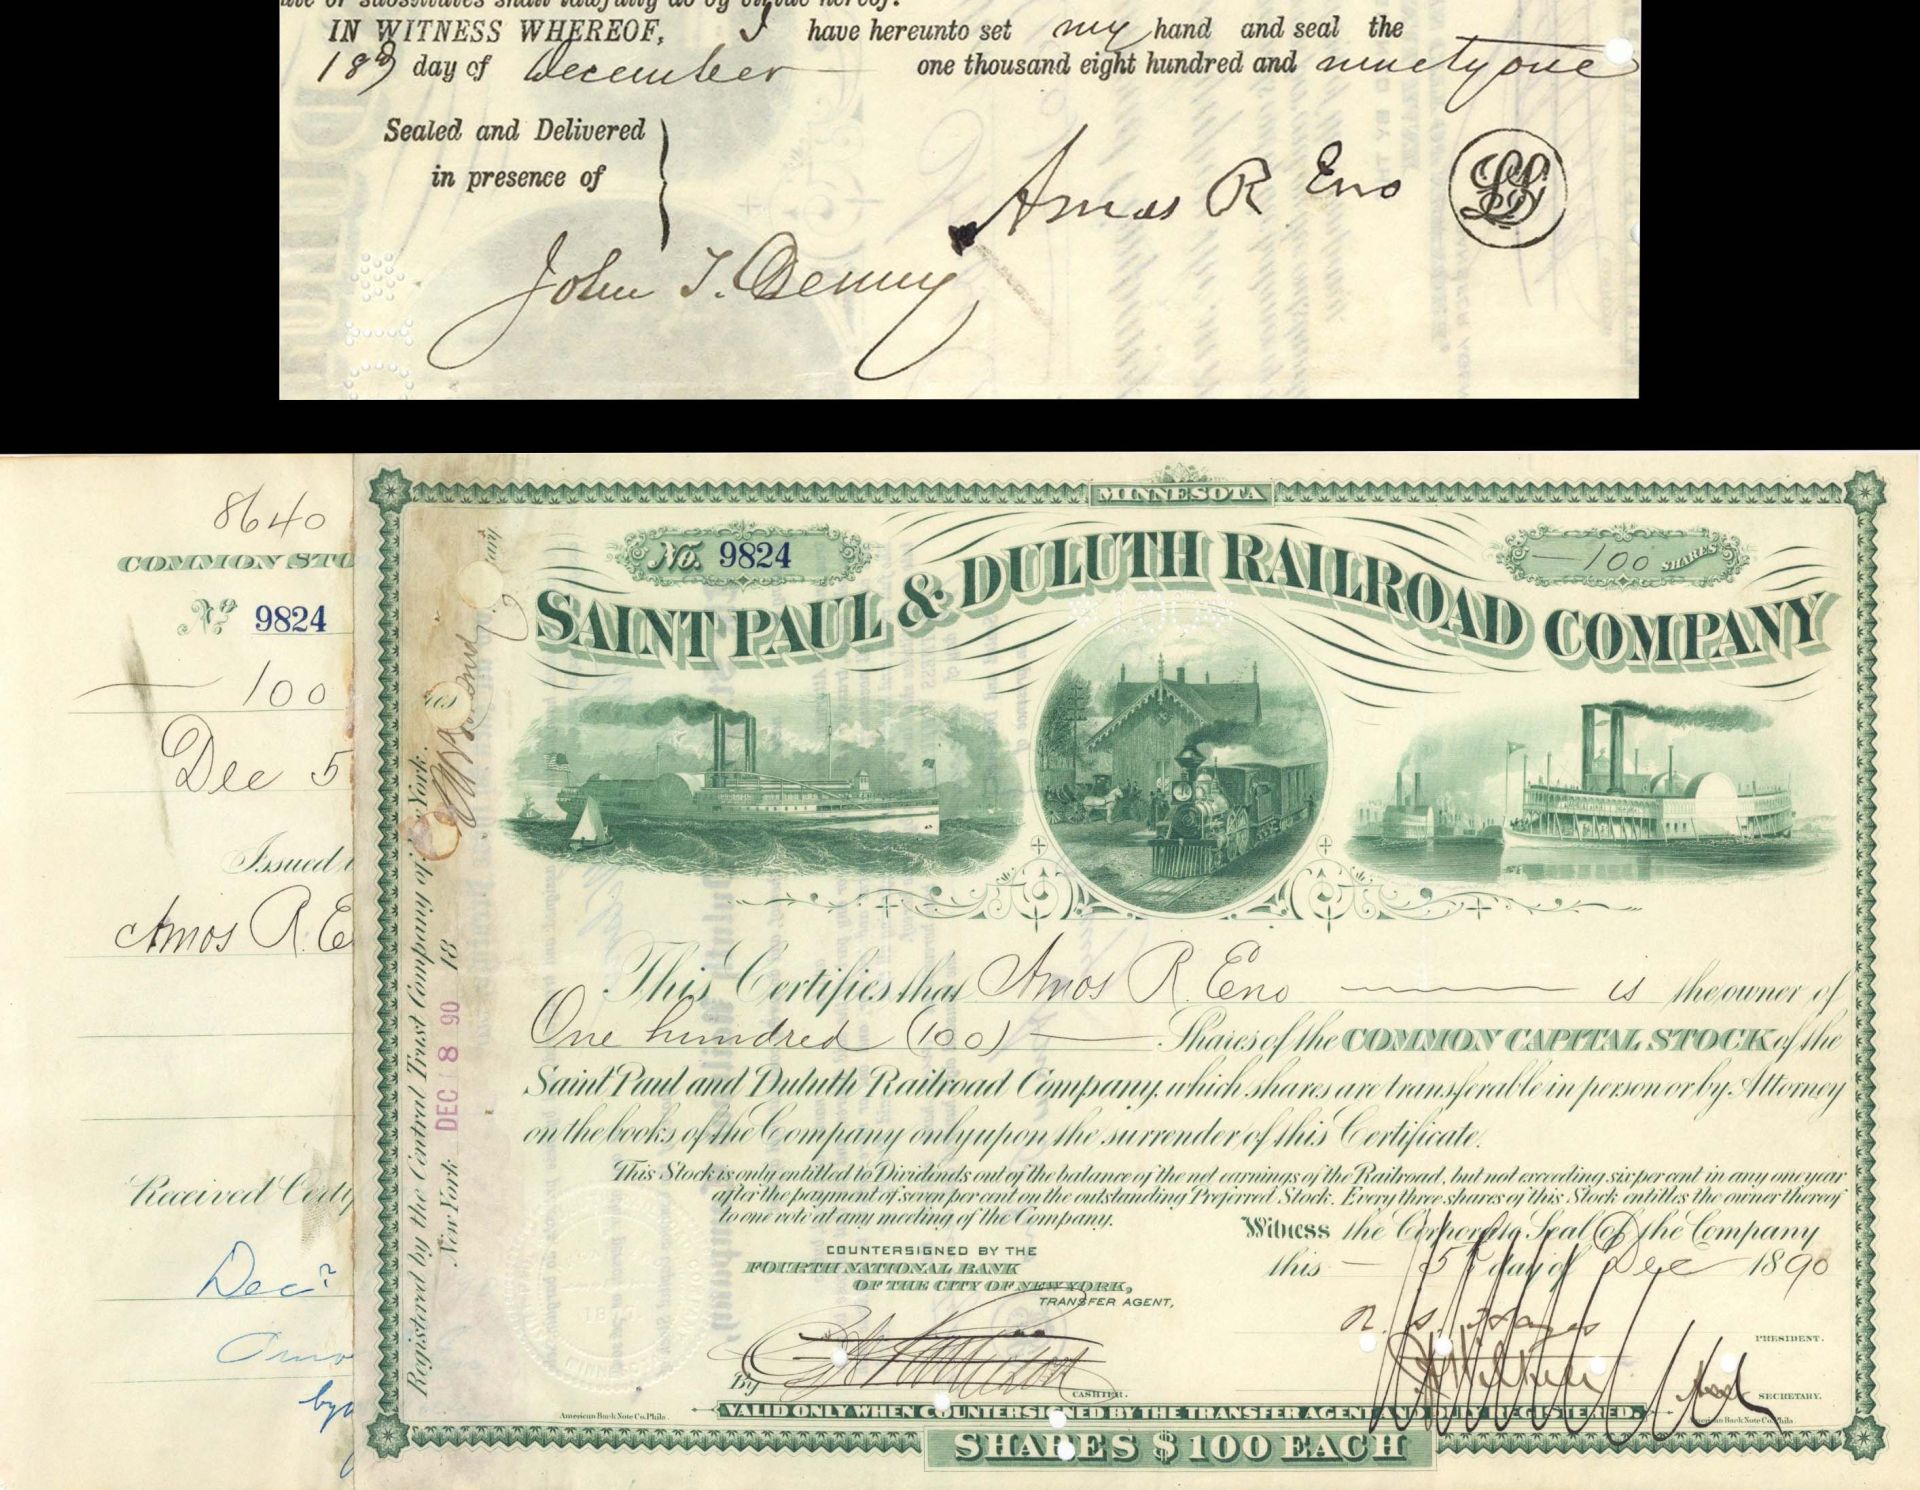 ate or substitutes shall lawfully do by virtue hereof.
IN WITNESS WHEREOF, I have hereunto set my hand and seal the
18 day of December one thousand eight hundred and ninety one
Sealed and Delivered
in presence of
Amos R Eno
LS
John T. Denny
8640
COMMON STO
No 9824
100
Dec 5
Issued t
Amos R. E
Received Certif
Dec
Amo
by
Registered by the Central Trust Company of New York.
New York DEC 18 90 18
MINNESOTA
No. 9824
100 SHARES
SAINT PAUL & DULUTH RAILROAD COMPANY
This Certifies that Amos R. Eno is the owner of
One hundred (100) Shares of the COMMON CAPITAL STOCK of the
Saint Paul and Duluth Railroad Company, which shares are transferable in person or by Attorney
on the books of the Company only upon the surrender of this Certificate.
This Stock is only entitled to Dividends out of the balance of the net earnings of the Railroad, but not exceeding six per cent in any one year
after the payment of seven per cent on the outstanding Preferred Stock. Every three shares of this Stock entitles the owner thereof
to one vote at any meeting of the Company.
Witness the Corporate Seal of the Company
this 5th day of Dec 1890
COUNTERSIGNED BY THE
FOURTH NATIONAL BANK
OF THE CITY OF NEW YORK,
TRANSFER AGENT,
PRESIDENT.
By CASHIER.
SECRETARY.
American Bank Note Co. Phila.
VALID ONLY WHEN COUNTERSIGNED BY THE TRANSFER AGENT AND DULY REGISTERED.
American Bank Note Co. Phila
SHARES $100 EACH